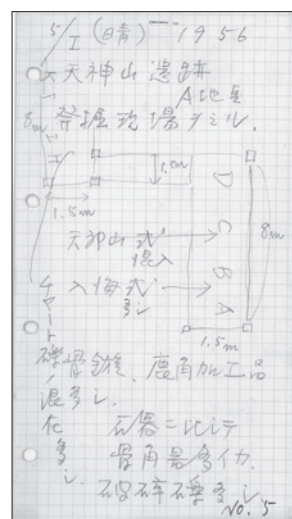 5/I (日青) 1956
天神山遺跡
A地点
発掘現場ヲミル.
8m
1.5m
D
C
B
A
8m
天神山式
混入
入海式
多シ
1.5m
礫骨鏃、鹿角加工品
混多シ.
石器ニ比シテ
骨角器多イカ.
破砕礫多シ
No. 5